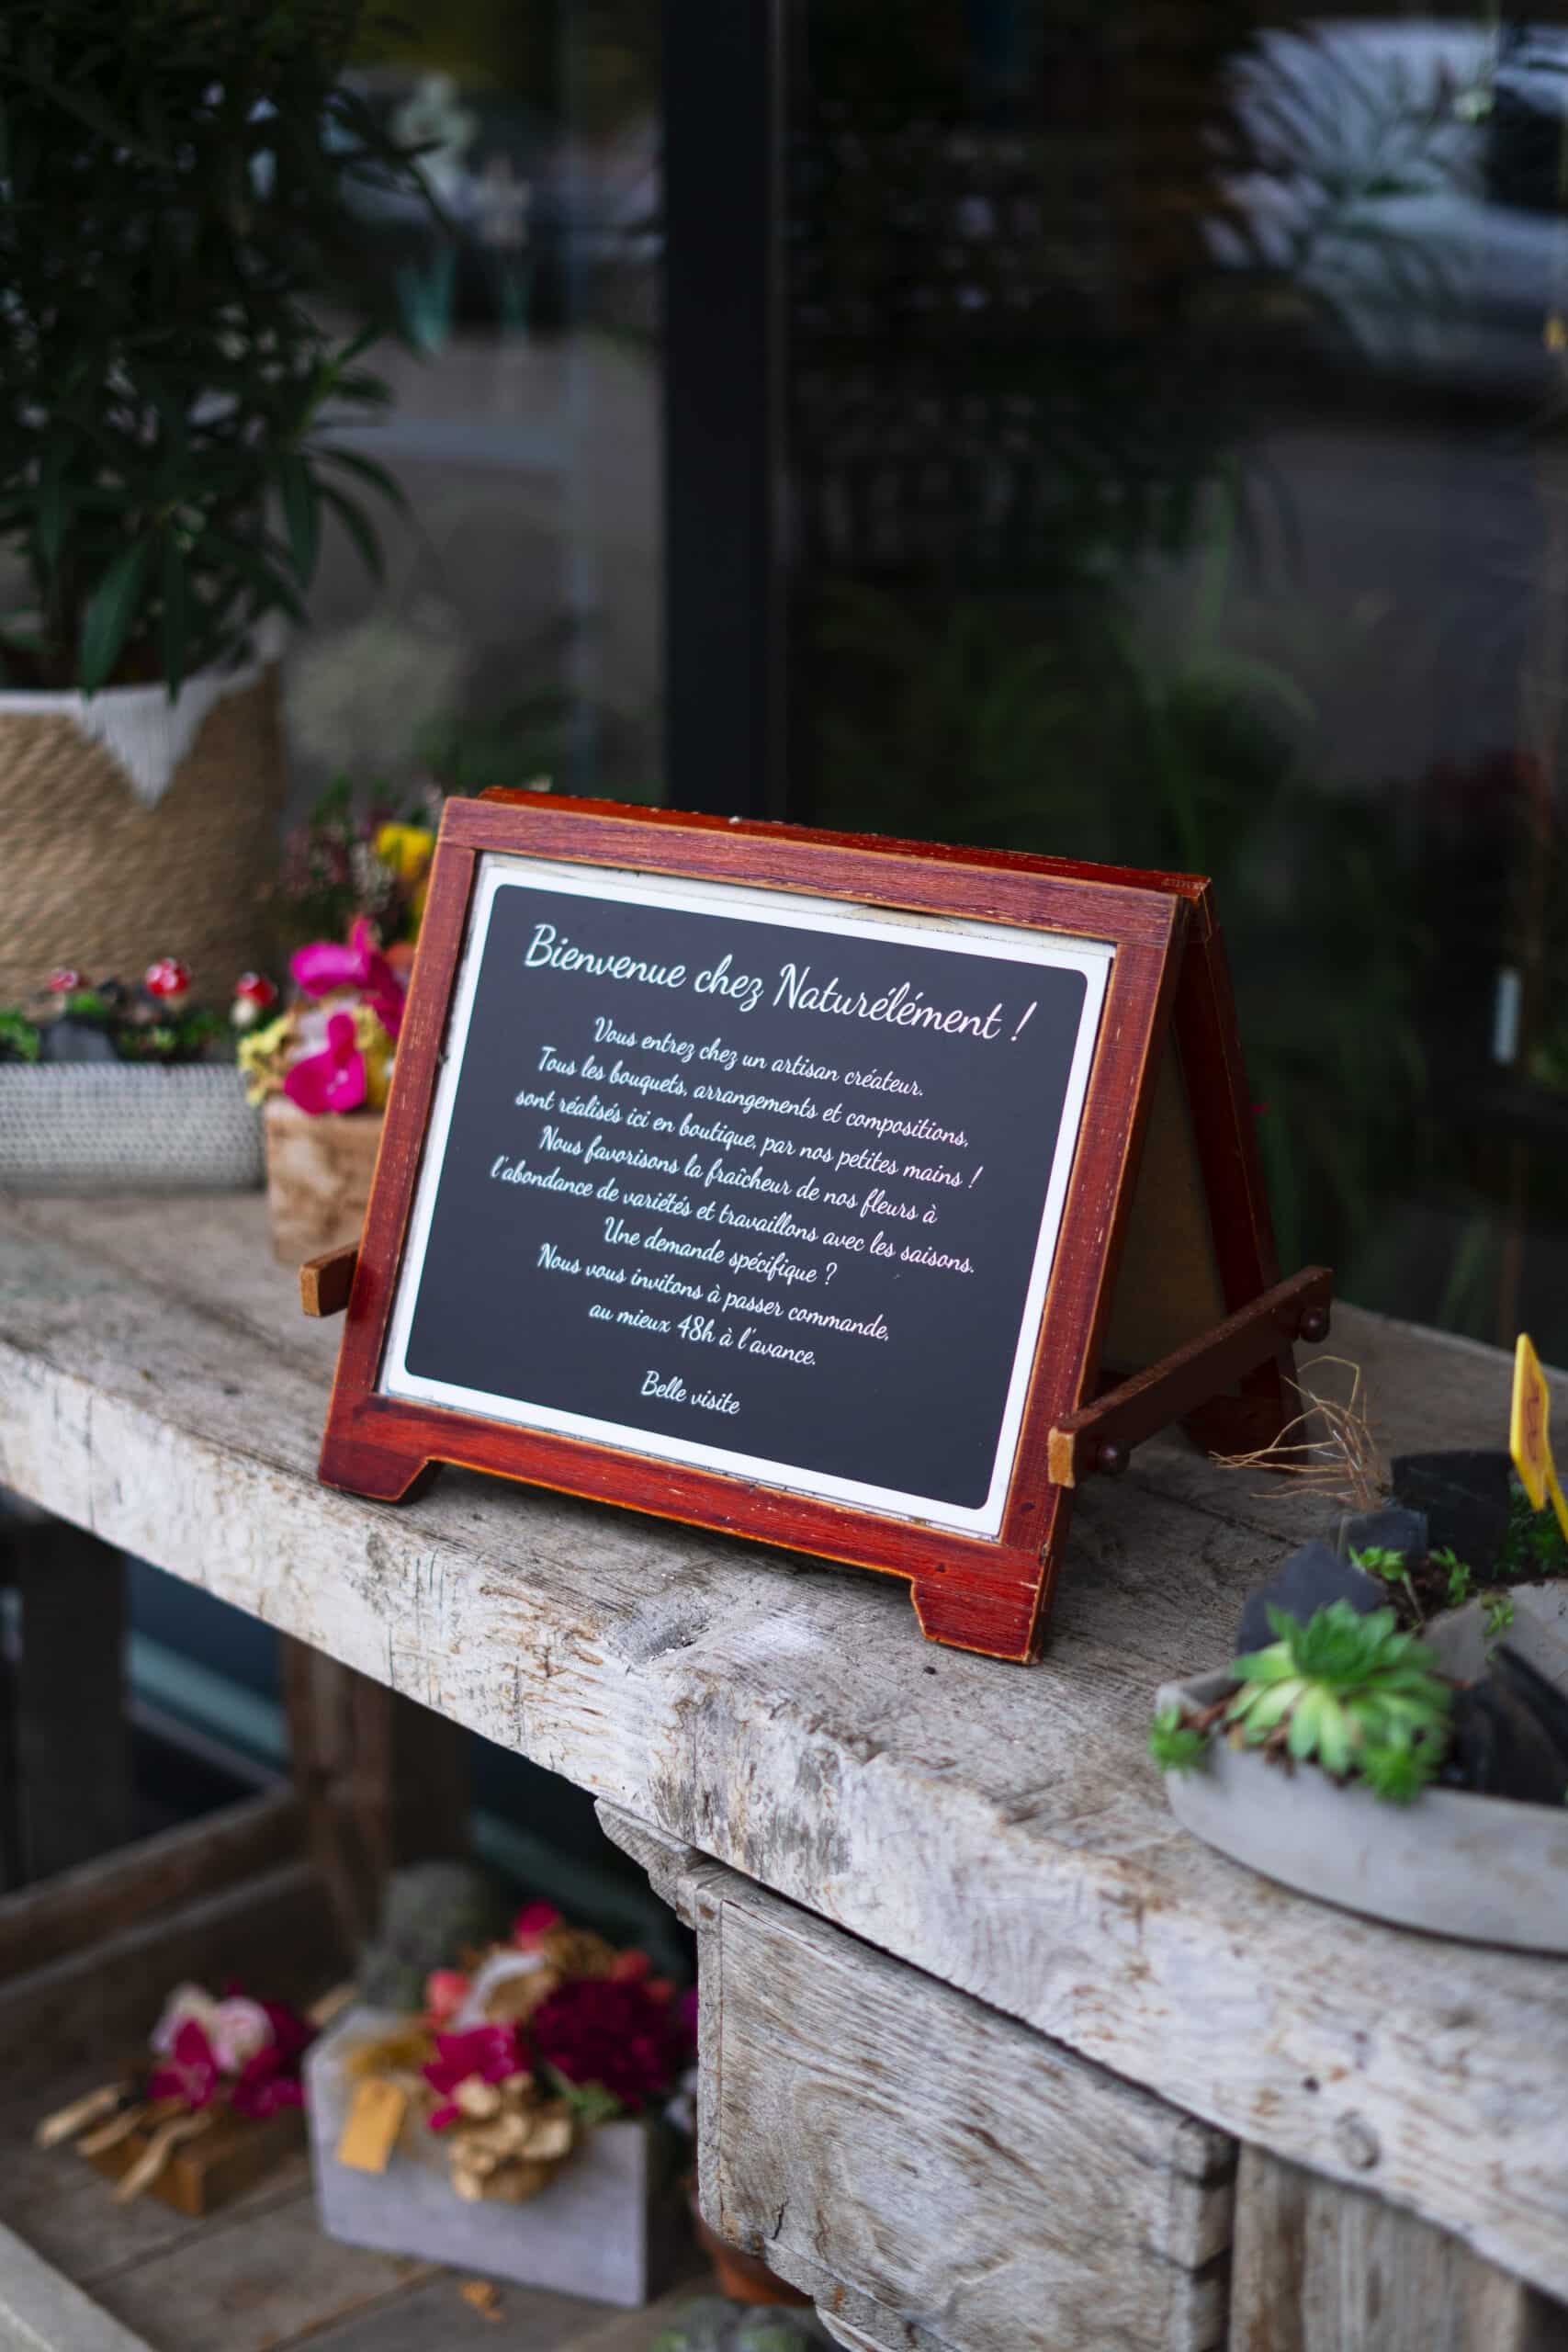 Bienvenue chez Naturélément !
Vous entrez chez un artisan créateur.
Tous les bouquets, arrangements et compositions,
sont réalisés ici en boutique, par nos petites mains !
Nous favorisons la fraîcheur de nos fleurs à
l'abondance de variétés et travaillons avec les saisons.
Une demande spécifique ?
Nous vous invitons à passer commande,
au mieux 48h à l'avance.
Belle visite